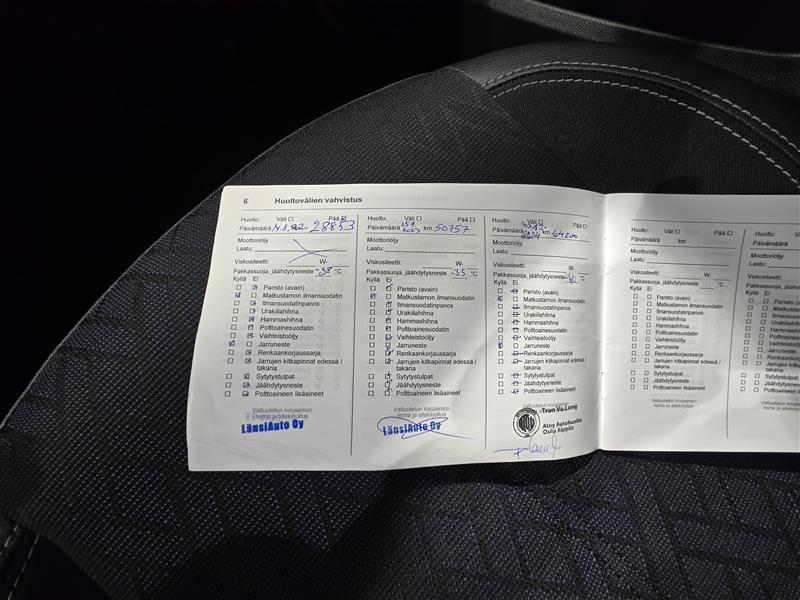 6 Huoltovälien vahvistus
Huolto: Väli Pää
Päivämäärä 28853
Moottoriöljy
Laatu:
Viskositeetti: W-
Pakkassuoja, jäähdytysneste -38 °C
Kyllä Ei
Paristo (avain)
Matkustamon ilmansuodatin
Ilmansuodatinpanos
Urakiilahihna
Hammashihna
Polttoainesuodatin
Vaihteistoöljy
Jarruneste
Renkaankorjaussarja
Jarrujen kitkapinnat edessä /
takana
Sytytystulpat
Jäähdytysneste
Polttoaineen lisäaineet
Valtuutetun korjaamon
leima ja allekirjoitus
LänsiAuto Oy
Huolto: Väli Pää
Päivämäärä km 50757
Moottoriöljy
Laatu:
Viskositeetti: W-
Pakkassuoja, jäähdytysneste -35 °C
Kyllä Ei
Paristo (avain)
Matkustamon ilmansuodatin
Ilmansuodatinpanos
Urakiilahihna
Hammashihna
Polttoainesuodatin
Vaihteistoöljy
Jarruneste
Renkaankorjaussarja
Jarrujen kitkapinnat edessä /
takana
Sytytystulpat
Jäähdytysneste
Polttoaineen lisäaineet
Valtuutetun korjaamon
leima ja allekirjoitus
LänsiAuto Oy
Huolto: Väli Pää
Päivämäärä 2024 km 64200
Moottoriöljy
Laatu:
Viskositeetti: W-
Pakkassuoja, jäähdytysneste -40 °C
Kyllä Ei
Paristo (avain)
Matkustamon ilmansuodatin
Ilmansuodatinpanos
Urakiilahihna
Hammashihna
Polttoainesuodatin
Vaihteistoöljy
Jarruneste
Renkaankorjaussarja
Jarrujen kitkapinnat edessä /
takana
Sytytystulpat
Jäähdytysneste
Polttoaineen lisäaineet
Valtuutetun korjaamon
Tran Vu Long
Atoy Autohuolto
Oulu Alppila
Huolto: Väli Pää
Päivämäärä km
Moottoriöljy
Laatu:
Viskositeetti: W-
Pakkassuoja, jäähdytysneste °C
Kyllä Ei
Paristo (avain)
Matkustamon ilmansuodatin
Ilmansuodatinpanos
Urakiilahihna
Hammashihna
Polttoainesuodatin
Vaihteistoöljy
Jarruneste
Renkaankorjaussarja
Jarrujen kitkapinnat edessä /
takana
Sytytystulpat
Jäähdytysneste
Polttoaineen lisäaineet
Valtuutetun korjaamon
leima ja allekirjoitus
Huolto:
Päivämäärä
Moottoriöljy
Laatu:
Viskositeetti:
Pakkassuoja,
Kyllä Ei